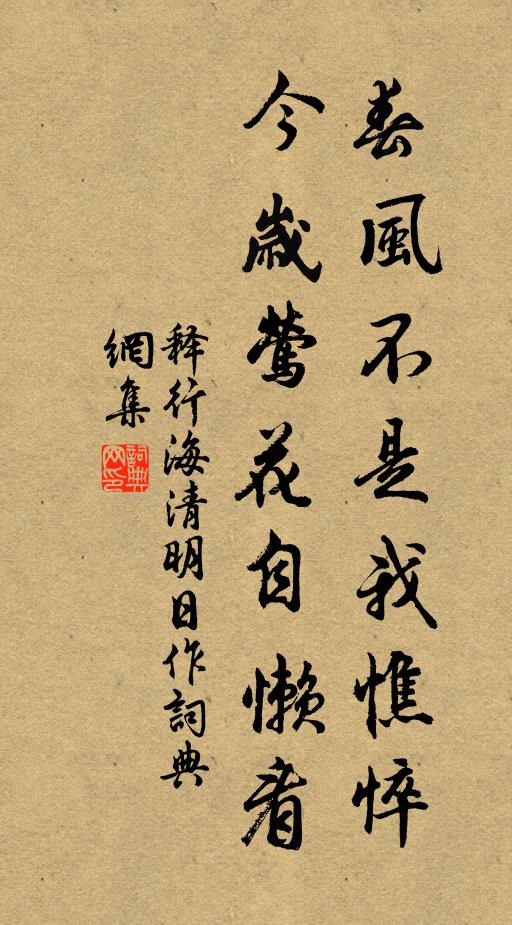 春風不是我憔悴
今歲鶯花自懶看
释行海清明日作詞典
網集
詞典網印